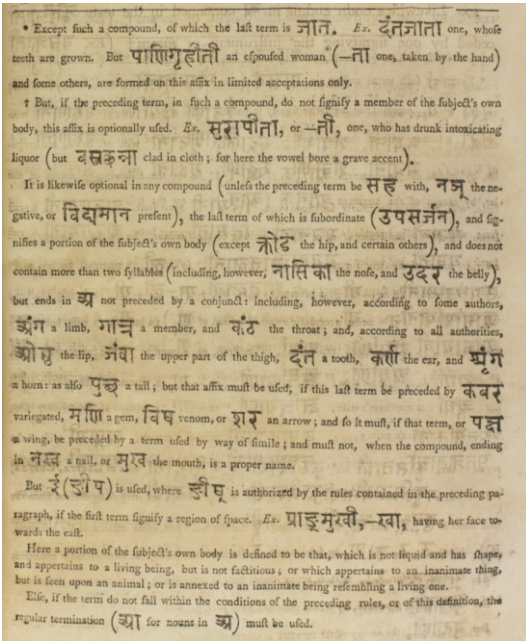 * Except ſuch a compound, of which the laſt term is जात. Ex. दंतजाता one, whoſe
teeth are grown. But पाणिगृहीती an eſpouſed woman (—ता one, taken by the hand)
and ſome others, are formed on this affix in limited acceptations only.
† But, if the preceding term, in ſuch a compound, do not ſignify a member of the ſubject's own
body, this affix is optionally uſed. Ex. सुरापीता, or —ती, one, who has drunk intoxicating
liquor (but वस्त्रछन्ना clad in cloth; for here the vowel bore a grave accent).
It is likewiſe optional in any compound (unleſs the preceding term be सह with, नञ् the ne-
gative, or विद्यमान preſent), the laſt term of which is ſubordinate (उपसर्जन), and ſig-
nifies a portion of the ſubject's own body (except क्रोड the hip, and certain others), and does not
contain more than two ſyllables (including, however, नासिका the noſe, and उदर the belly),
but ends in अ not preceded by a conjunct: including, however, according to ſome authors,
अंग a limb, गात्र a member, and कंठ the throat; and, according to all authorities,
ओष्ठ the lip, जंघा the upper part of the thigh, दंत a tooth, कर्ण the ear, and शृंग
a horn: as alſo पुच्छ a tail; but that affix muſt be uſed, if this laſt term be preceded by कबर
variegated, मणि a gem, विष venom, or शर an arrow; and ſo it muſt, if that term, or पक्ष
a wing, be preceded by a term uſed by way of ſimile; and muſt not, when the compound, ending
in नख a nail, or मुख the mouth, is a proper name.
But ई (ङीप्) is uſed, where ङीष् is authorized by the rules contained in the preceding pa-
ragraph, if the firſt term ſignify a region of ſpace. Ex. प्राङ्मुखी,—खा, having her face to-
wards the eaſt.
Here a portion of the ſubject's own body is defined to be that, which is not liquid and has ſhape,
and appertains to a living being, but is not factitious; or which appertains to an inanimate thing,
but is ſeen upon an animal; or is annexed to an inanimate being reſembling a living one.
Elſe, if the term do not fall within the conditions of the preceding rules, or of this definition, the
regular termination (आ for nouns in अ) muſt be uſed.